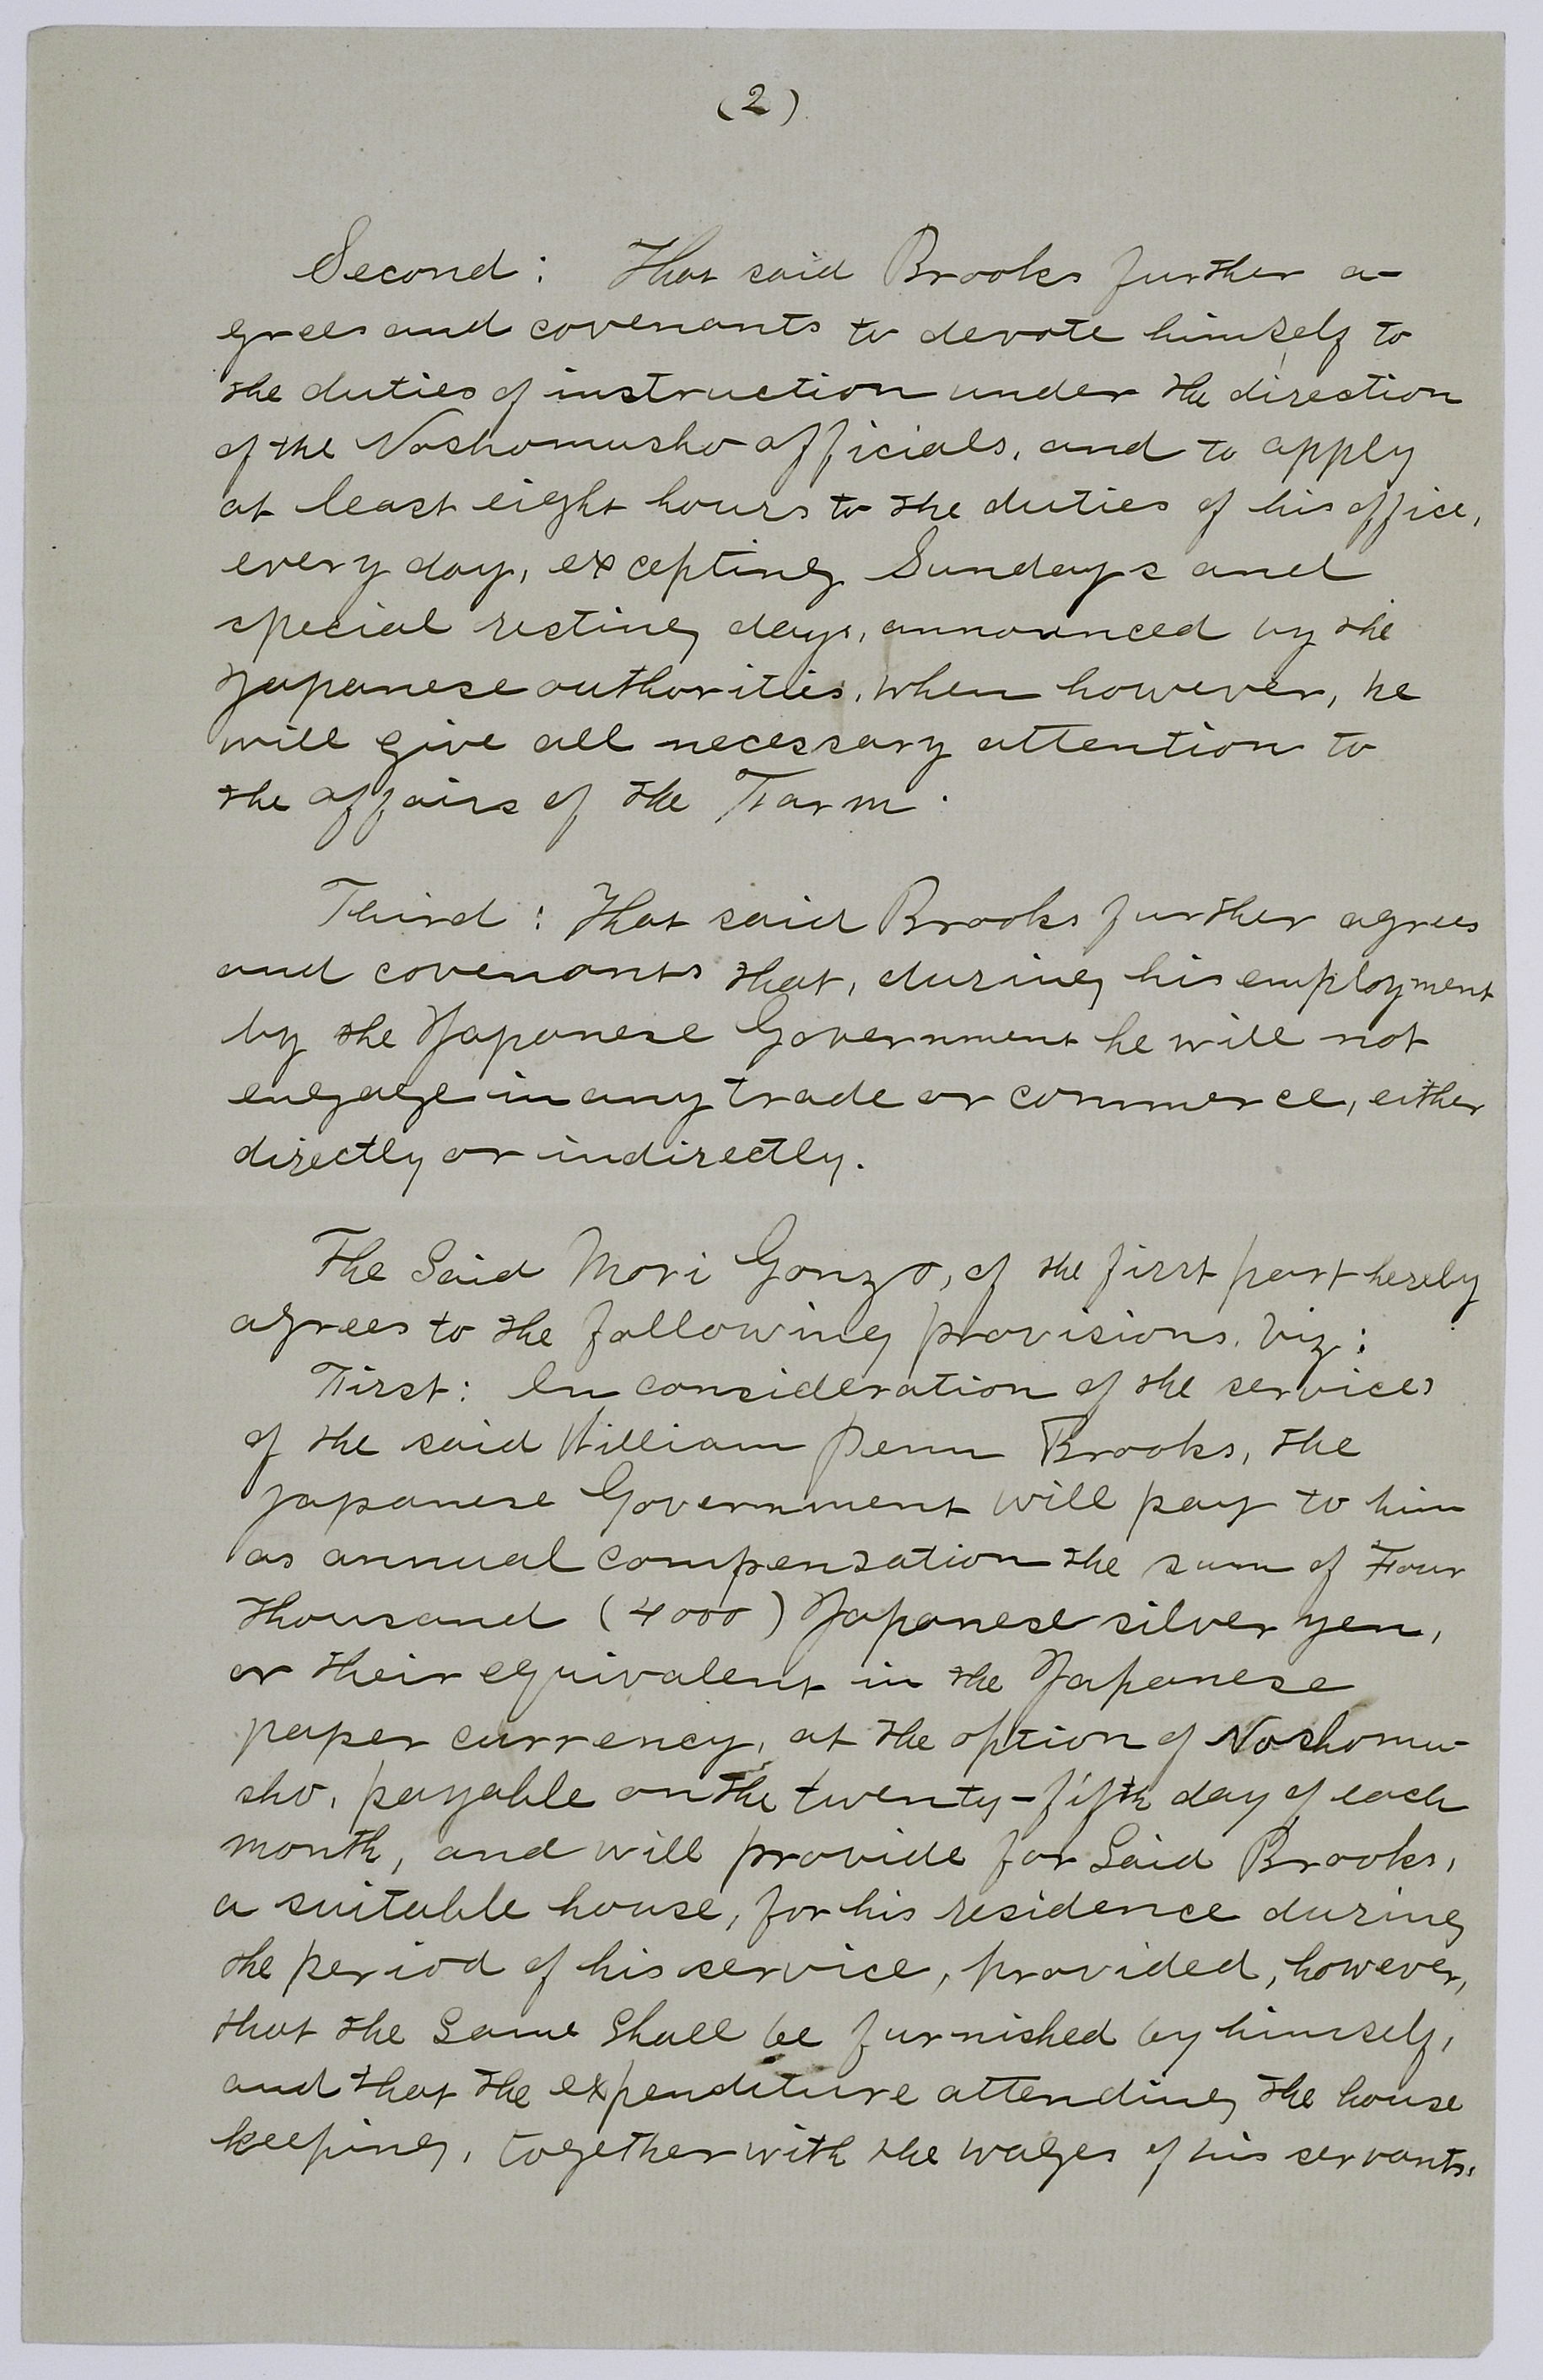 (2)
Second: That said Brooks further a-
grees and covenants to devote himself to
the duties of instruction under the direction
of the Noshomusho officials, and to apply
at least eight hours to the duties of his office,
every day, excepting Sundays and
special resting days, announced by the
Japanese authorities, when however, he
will give all necessary attention to
the affairs of the Farm.
Third: That said Brooks further agrees
and covenants that, during his employment
by the Japanese Government he will not
engage in any trade or commerce, either
directly or indirectly.
The Said Mori Gonzo, of the first part hereby
agrees to the following provisions. viz:
First: In consideration of the services
of the said William Penn Brooks, the
Japanese Government will pay to him
as annual compensation the sum of Four
thousand (4000) Japanese silver yen,
or their equivalent in the Japanese
paper currency, at the option of Noshomu-
sho, payable on the twenty-fifth day of each
month, and will provide for Said Brooks,
a suitable house, for his residence during
the period of his service, provided, however,
that the Same Shall be furnished by himself,
and that the expenditure attending the house
keeping, together with the wages of his servants,